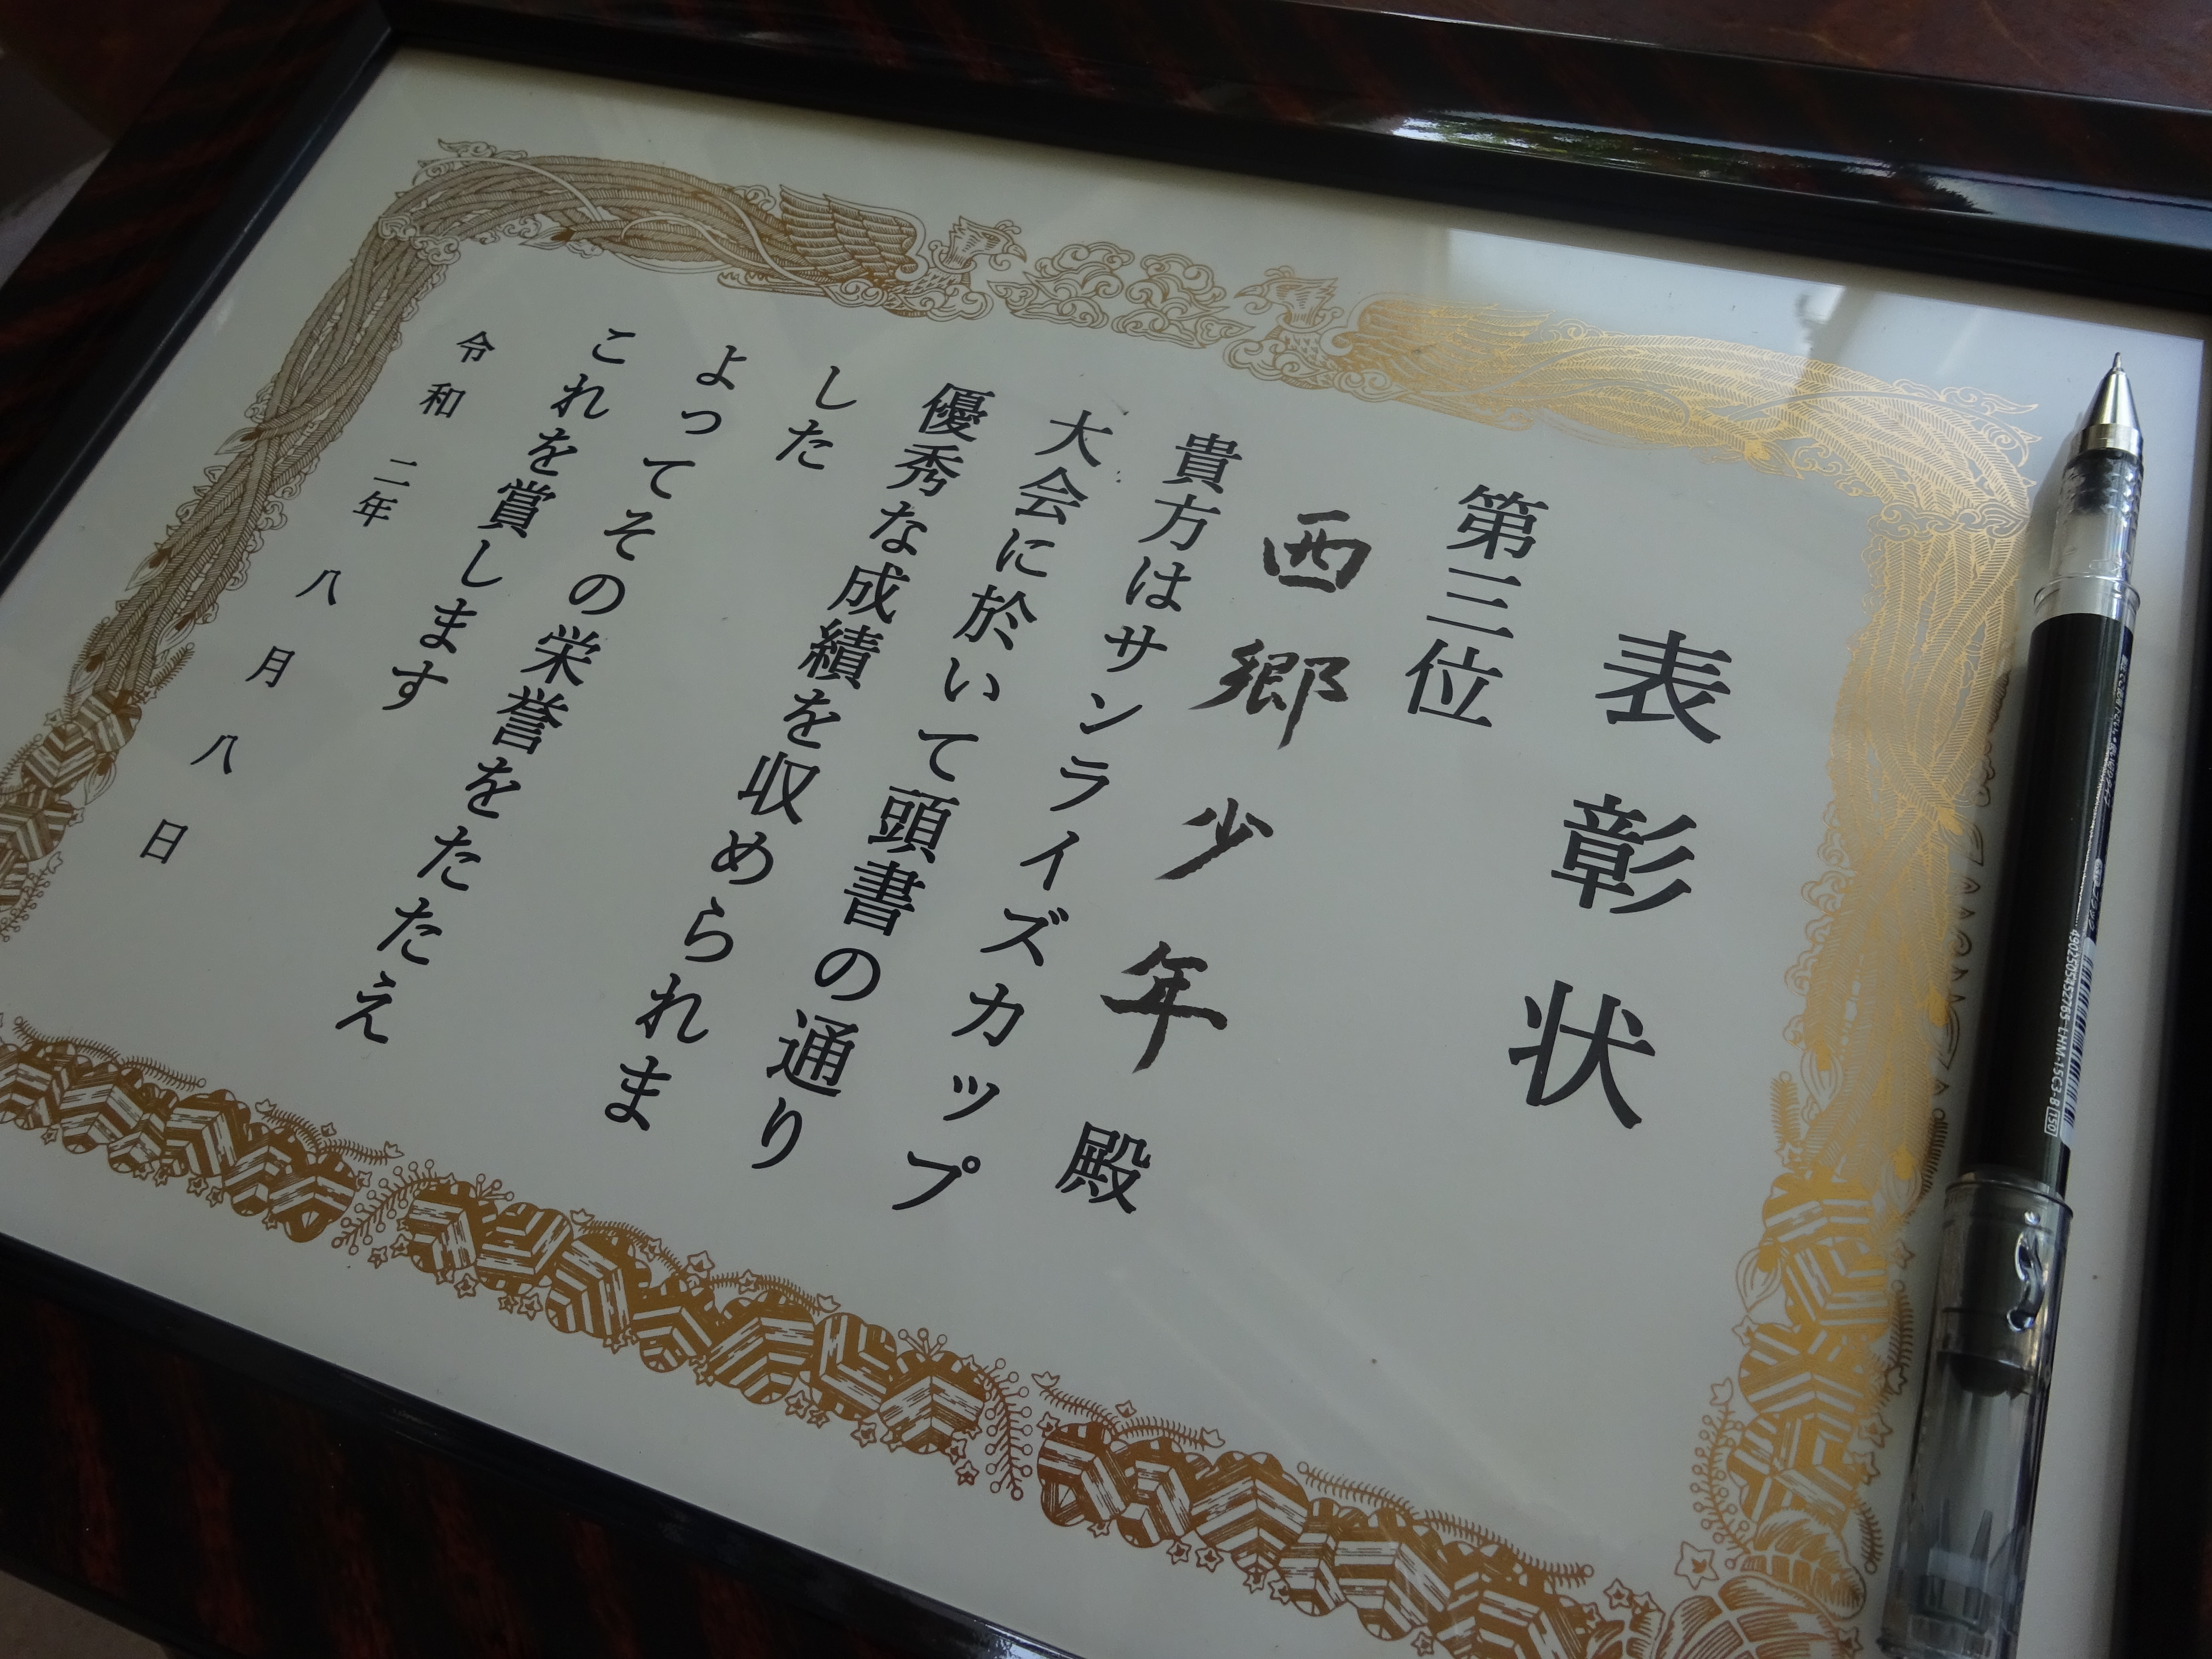 表彰状
第三位
西郷少年 殿
貴方はサンライズカップ
大会に於いて頭書の通り
優秀な成績を収められま
した
よってその栄誉をたたえ
これを賞します
令和 二年 八月 八日
4902505452765 LHM-15C3-B 150